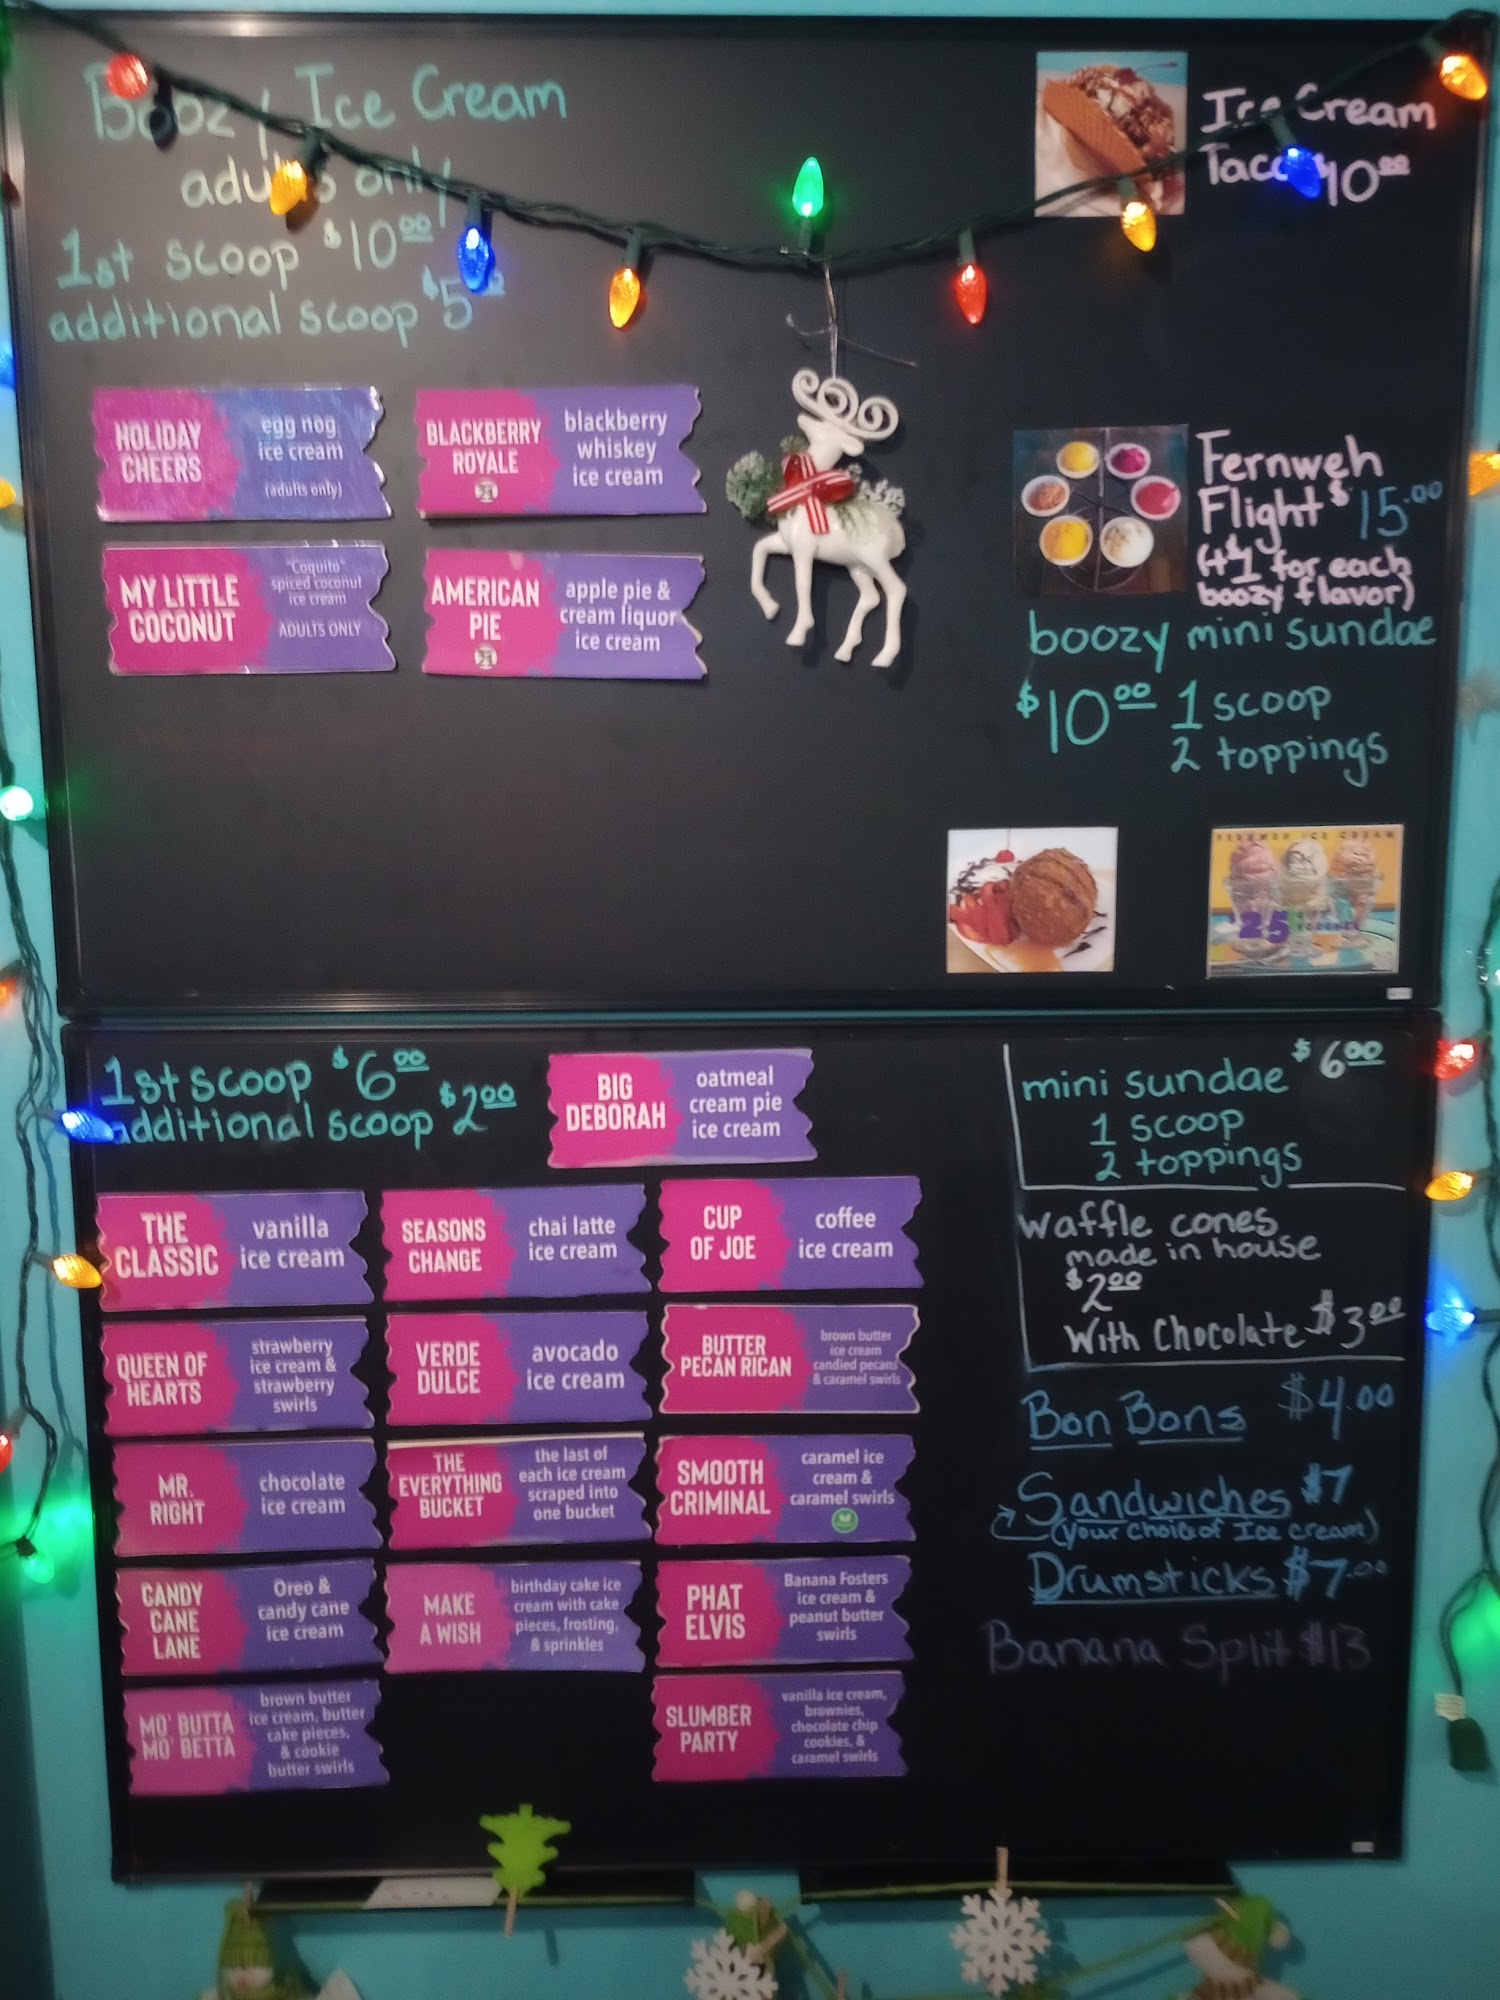 Boozy Ice Cream
adults only
1st scoop $10.00
additional scoop $5
HOLIDAY
CHEERS
egg nog
ice cream
(adults only)
BLACKBERRY
ROYALE
21
blackberry
whiskey
ice cream
MY LITTLE
COCONUT
"Coquito"
spiced coconut
ice cream
ADULTS ONLY
AMERICAN
PIE
21
apple pie &
cream liquor
ice cream
Ice Cream
Taco $10.00
Fernweh
Flight $15.00
(+$1 for each
boozy flavor)
boozy mini sundae
$10.00 1 scoop
2 toppings
FERNWEH ICE CREAM
$25
1st scoop $6.00
additional scoop $2.00
BIG
DEBORAH
oatmeal
cream pie
ice cream
THE
CLASSIC
vanilla
ice cream
SEASONS
CHANGE
chai latte
ice cream
CUP
OF JOE
coffee
ice cream
QUEEN OF
HEARTS
strawberry
ice cream &
strawberry
swirls
VERDE
DULCE
avocado
ice cream
BUTTER
PECAN RICAN
brown butter
ice cream
candied pecans
& caramel swirls
MR.
RIGHT
chocolate
ice cream
THE
EVERYTHING
BUCKET
the last of
each ice cream
scraped into
one bucket
SMOOTH
CRIMINAL
caramel ice
cream &
caramel swirls
CANDY
CANE
LANE
Oreo &
candy cane
ice cream
MAKE
A WISH
birthday cake ice
cream with cake
pieces, frosting,
& sprinkles
PHAT
ELVIS
Banana Fosters
ice cream &
peanut butter
swirls
MO' BUTTA
MO' BETTA
brown butter
ice cream, butter
cake pieces,
& cookie
butter swirls
SLUMBER
PARTY
vanilla ice cream,
brownies,
chocolate chip
cookies, &
caramel swirls
mini sundae $6.00
1 scoop
2 toppings
waffle cones
made in house
$2.00
With Chocolate $3.00
Bon Bons $4.00
Sandwiches $7
(your choice of Ice cream)
Drumsticks $7.00
Banana Split $13